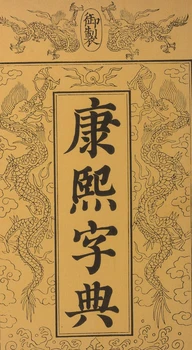 御製
康熙字典